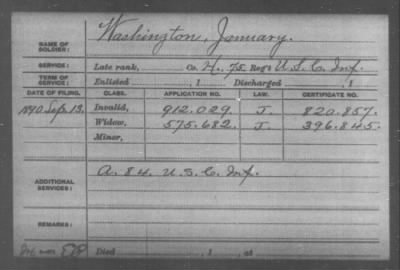 NAME OF SOLDIER: Washington, January.
SERVICE: Late rank, Co. H. 75. Reg't U.S.C. Inf.
TERM OF SERVICE: Enlisted , 1 Discharged , 1
DATE OF FILING. CLASS. APPLICATION NO. LAW. CERTIFICATE NO.
1890. Sep. 13. Invalid, 912.029. J. 820.857.
Widow, 575.682. J. 396.845.
Minor,
ADDITIONAL SERVICES: A. 84. U.S.C. Inf.
REMARKS:
Died , 1 , at